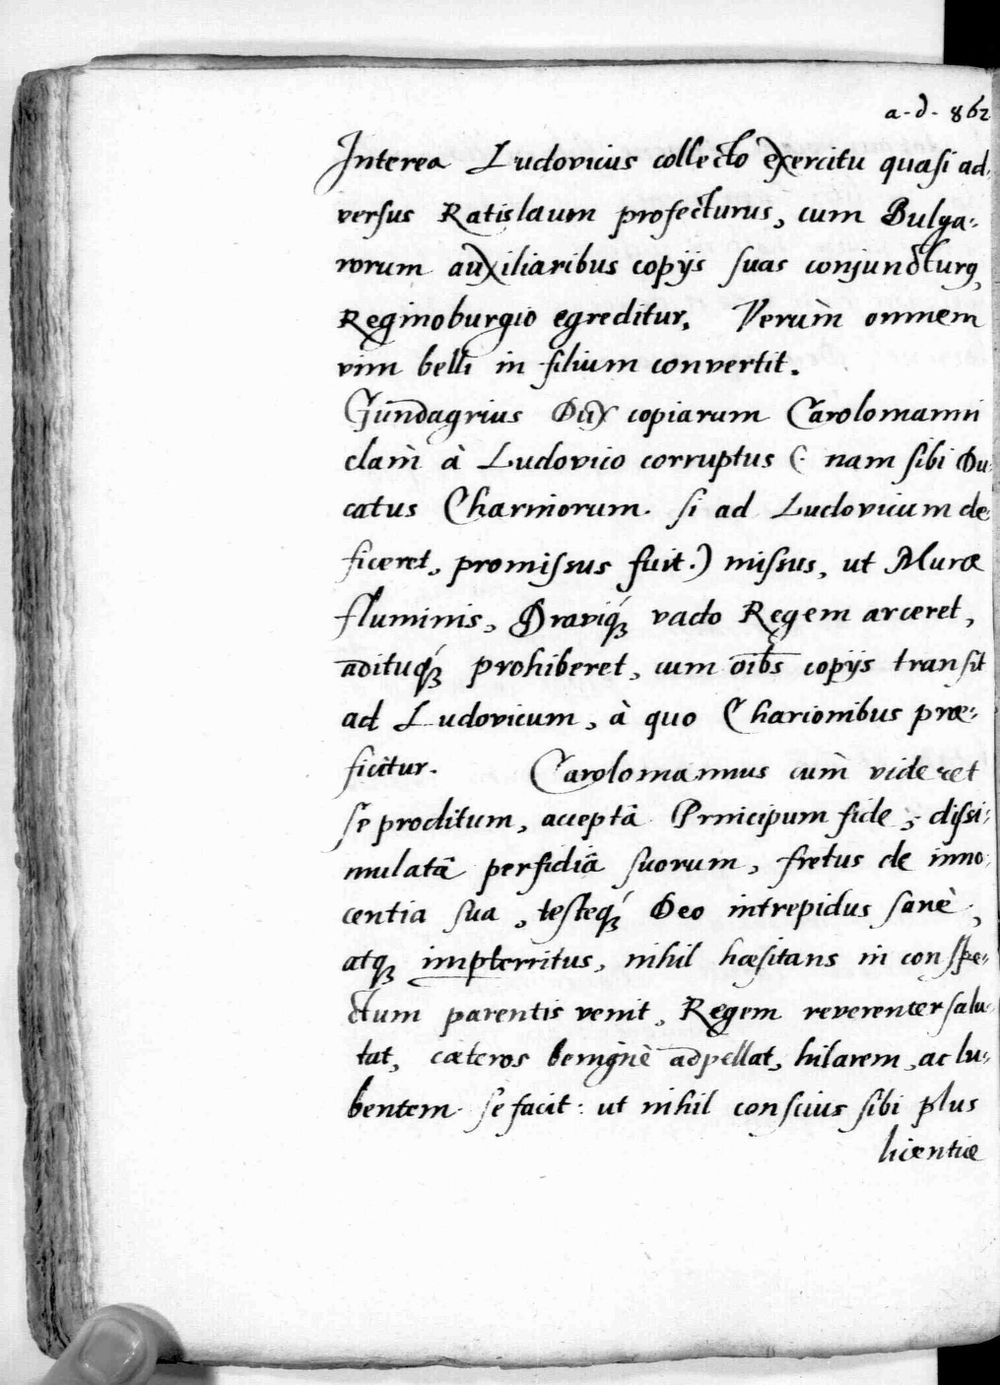 a. d. 862
Interea Ludovicus collecto exercitu quasi ad-
versus Ratislaum profecturus, cum Bulga-
rorum auxiliaribus copijs suas conjuncturq,
Reginoburgio egreditur. Verùm omnem
vim belli in filium convertit.
Gundagrius Dux copiarum Carolomanni
clam à Ludovico corruptus (: nam sibi Du-
catus Charinorum. si ad Ludovicum de
ficeret, promissus fuit.) missus, ut Muræ
fluminis, Draviq́ vado Regem arceret,
adituq́ prohiberet, cum oībs copijs transit
ad Ludovicum, à quo Charionibus præ-
ficitur. Carolomannus cum̀ videret
se proditum, acceptâ Principum fide, dissi-
mulatâ perfidiâ suorum, fretus de inno-
centia sua, testeq́ Deo intrepidus sanè,
atq impterritus, nihil hæsitans in conspe-
ctum parentis venit, Regem reverenter salu-
tat, cæteros benignè adpellat, hilarem, ac lu-
bentem se facit: ut nihil conscius sibi plus
licentiæ